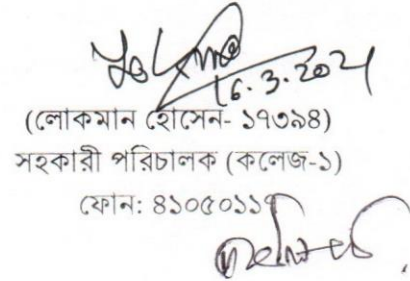 16.3.2021
(লোকমান হোসেন- ১৭৩৯৪)
সহকারী পরিচালক (কলেজ-১)
ফোন: ৪১০৫০১১৭